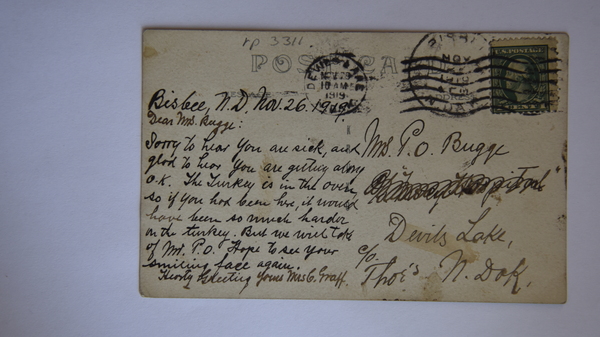 rp 3311
POST CARD
DEVILS LAKE
NOV 28
10 AM
1919
U.S. POSTAGE
Bisbee, N.D. Nov. 26 1919
Dear Mrs. Bugge:
Sorry to hear you are sick, and
glad to hear you are getting along
O.K. The Turkey is in the oven,
so if you had been here, it would
have been so much harder
on the turkey. But we will take
of Mr. P.O. Hope to see your
smiling face again.
Hearty Greeting Yours Mrs C. Graff.
Mrs. P. O. Bugge
Devils Lake,
c/o
Thoi's N. Dak,